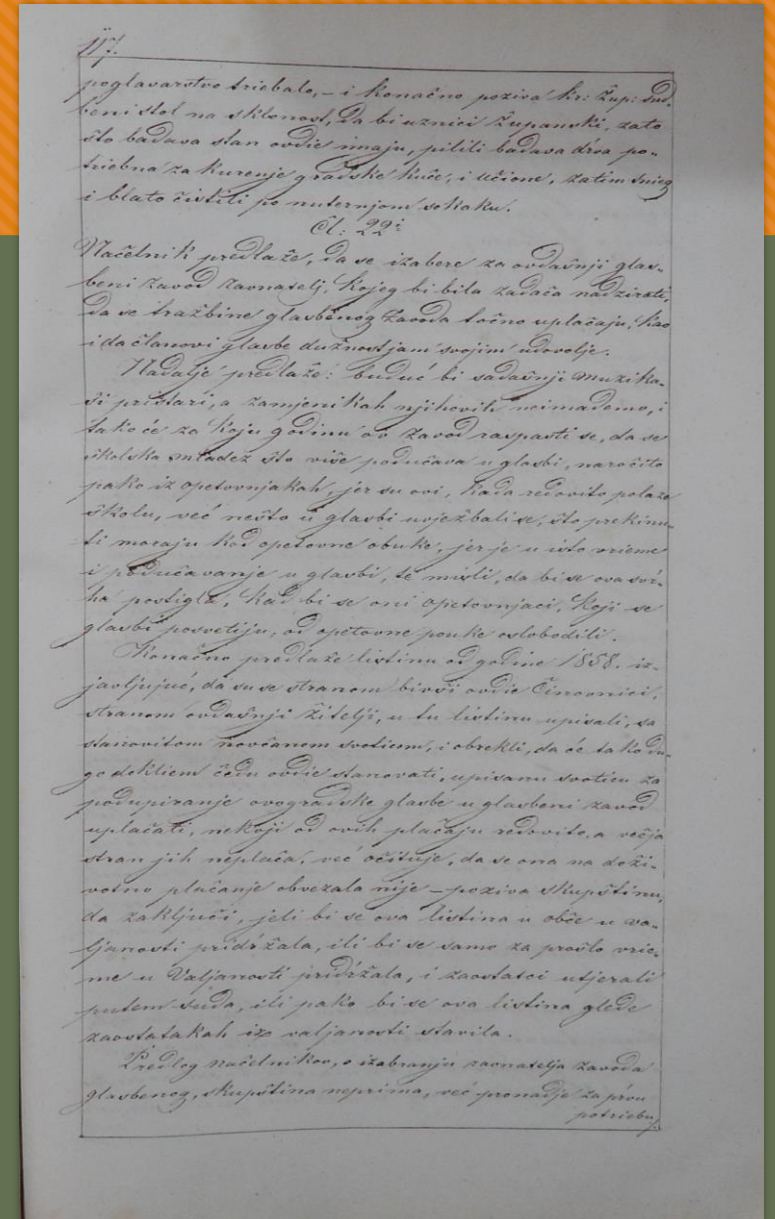 117.
poglavarstvo triebalo, – i konačno poziva kr: Žup: Sud-
beni stol na sklonost, da bi uznici Županski, zato
što badava stan ovdie imaju, pilili badava drva po-
triebna za kurenje gradske kuće, i učione, zatim snieg
i blato čistiti po nuternjom sokaku.
Čl: 22i
Načelnik predlaže, da se izabere za ovdašnji glas-
beni zavod ravnatelj, kojeg bi bila zadaća nadzirati,
da se tražbine glasbenog zavoda točno uplaćaju, kao
i da članovi glasbe dužnostjam svojim udovolje.
Nadalje predlaže: buduć bi sadašnji muzika-
ši pristari, a zamjenikah njihovih neimademo, i
tako će za koju godinu ov zavod raspasti se, da se
školska mladež što više podučava u glasbi, naročito
pako iz opetovnjakah, jer su ovi, kada redovito polaze
školu, već nešto u glasbi uvježbali se, što prekinu-
ti moraju kod opetovne obuke, jer je u isto vrieme
i podučavanje u glasbi, te misli, da bi se ova svr-
ha postigla, kad bi se oni opetovnjaci, koji se
glasbi posvetiju, od opetovne pouke oslobodili.
Konačno predlaže listinu od godine 1858. iz-
javljujuć, da su se stranom bivši ovdie Činovnici,
stranom ovdašnji žitelji, u tu listinu upisali, sa
stanovitom novčanom svoticom, i obrekli, da će tako du-
go dokliem čedu ovdie stanovati, upisanu svoticu za
podupiranje ovogradske glasbe u glasbeni zavod
uplaćati, nekoji od ovih plaćaju redovito, a večja
stran jih neplaća, već očituje, da se ona na doži-
votno plaćanje obvezala nije – poziva skupštinu,
da zaključi, jeli bi se ova listina u obće u va-
ljanosti pridržala, ili bi se samo za prošlo vrie-
me u valjanosti pridržala, i zaostatci utjerali
putem suda, ili pako bi se ova listina glede
zaostatakah iz valjanosti stavila.
Predlog načelnikov, o izabranju ravnatelja zavoda
glasbenog, skupština neprima, već pronadje za prvu
potriebu,